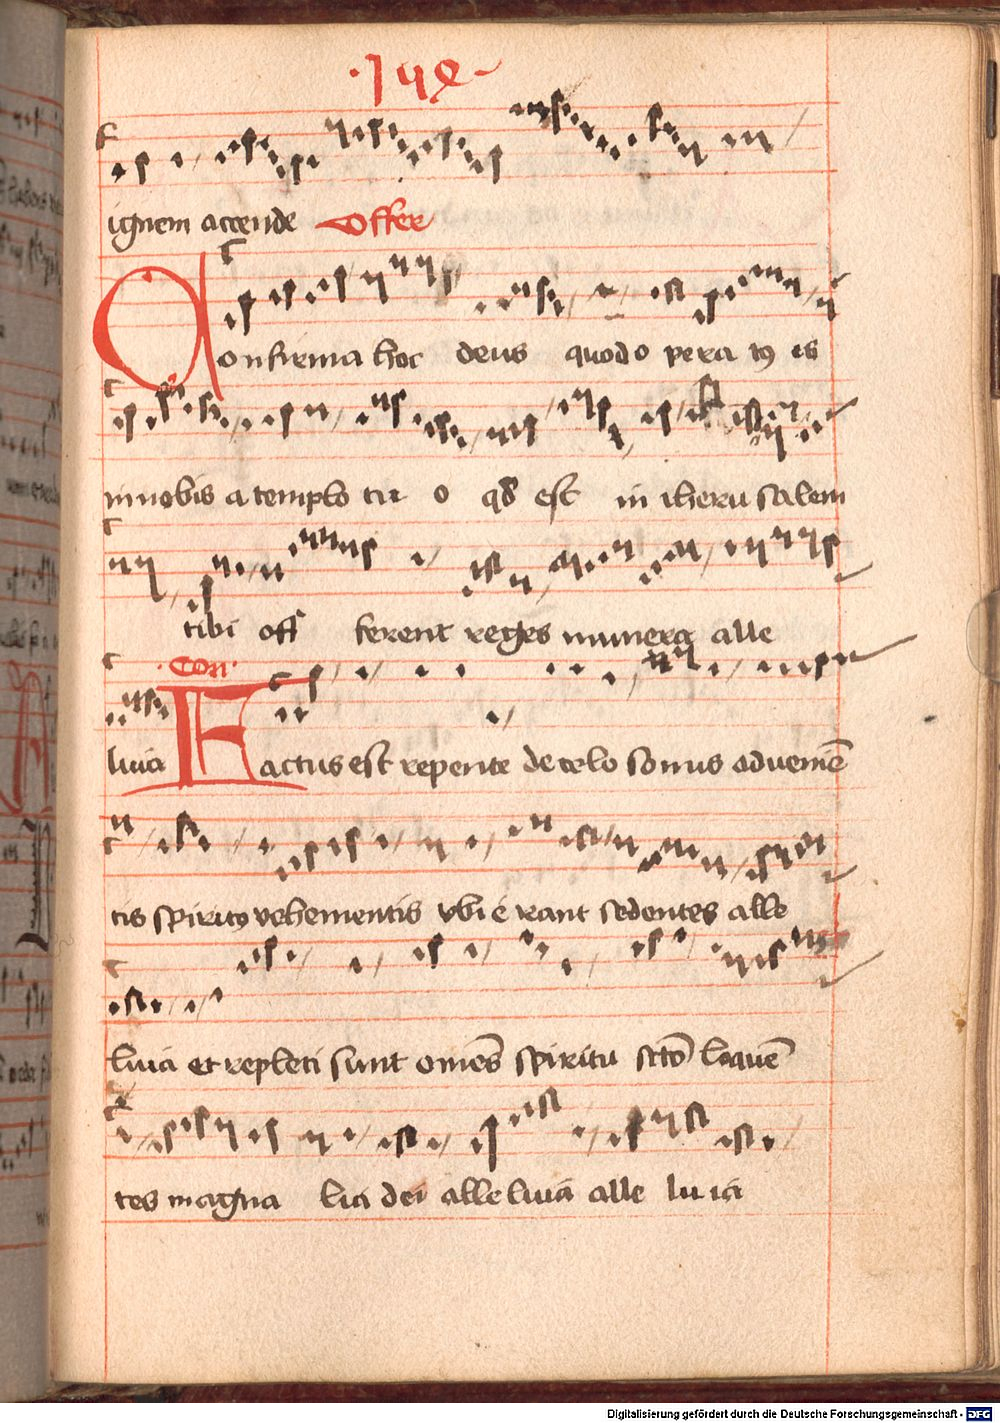 ·149·
ignem accende Offer
Confirma hoc deus quod opera tꝯ es
in nobis a templo tu o qd est in iherusalem
tibi off ferent reges munera alle
·Con·
luia Factus est repente de celo sonus adueniē
tis spiritꝯ vehementis vbi erant sedentes alle
luia et repleti sunt omēs spiritu scto loquē
tes magna lia dei alleluia alle luia
Digitalisierung gefördert durch die Deutsche Forschungsgemeinschaft - DFG